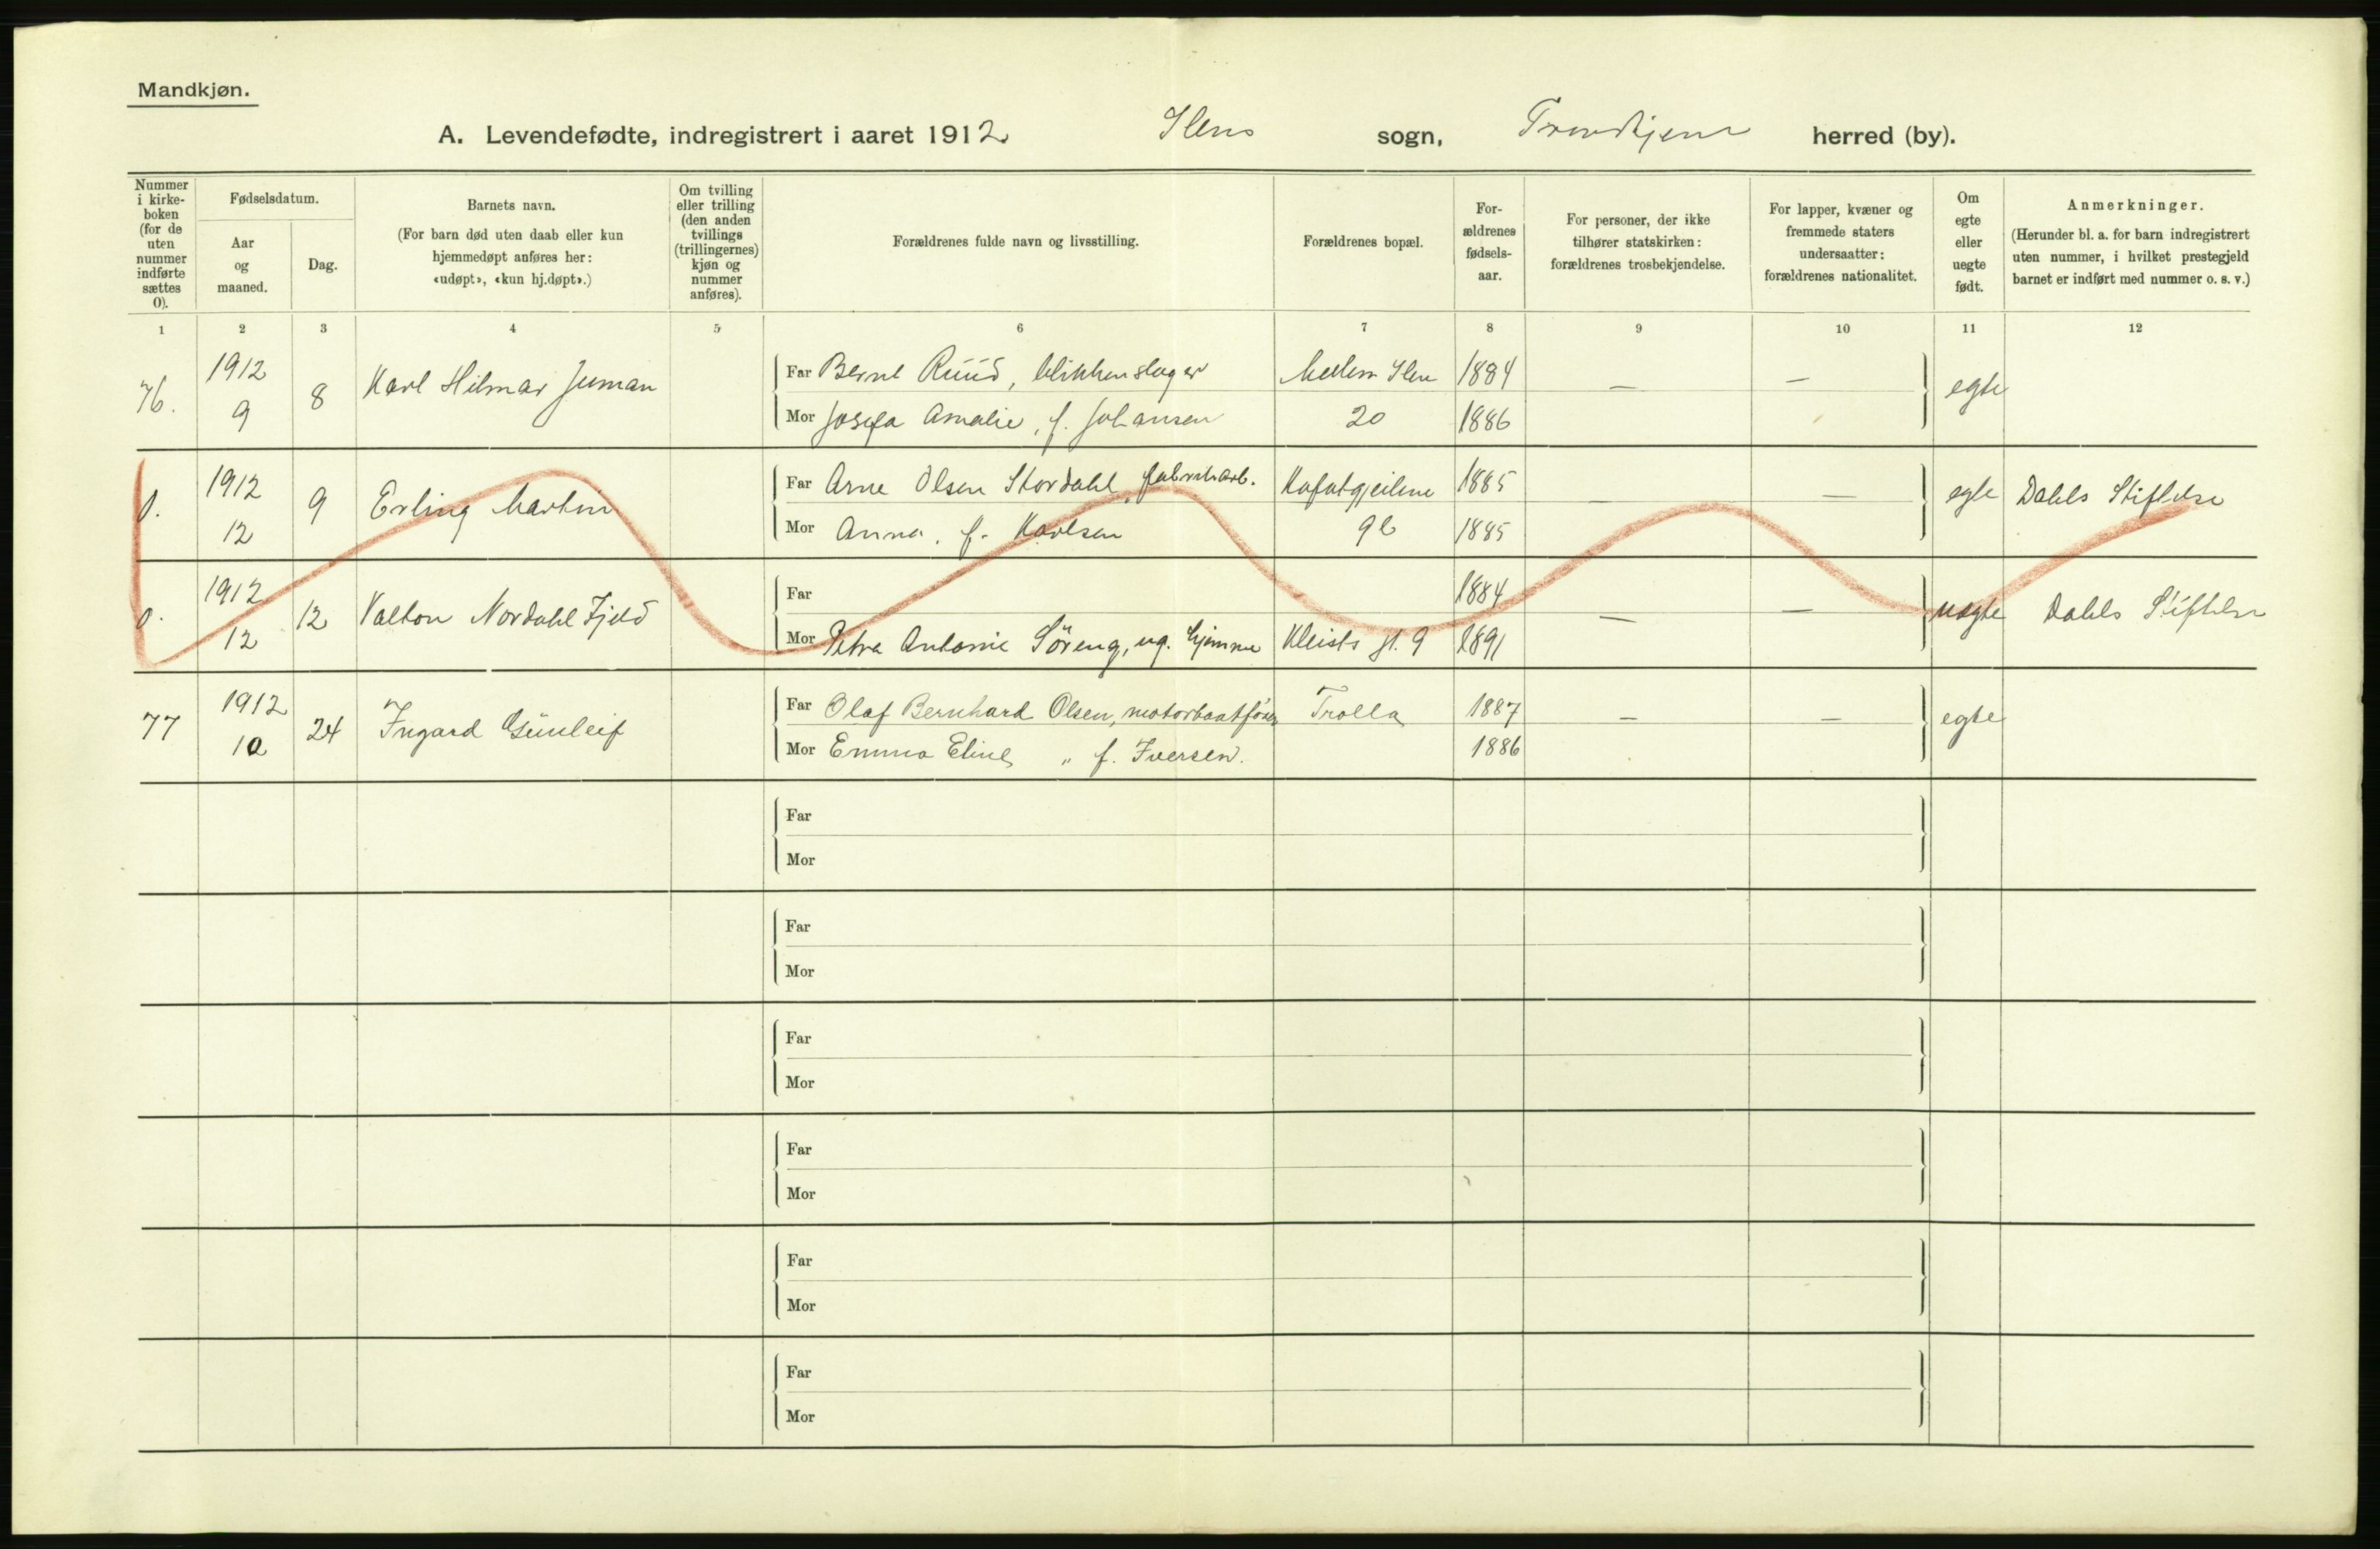 Mandkjøn.
A. Levendefødte, indregistrert i aaret 1912 Ilens sogn, Trondhjem herred (by).
Nummer i kirkeboken (for de uten nummer indførte sættes 0).
Fødselsdatum.
Aar og maaned.
Dag.
Barnets navn.
(For barn død uten daab eller kun hjemmedøpt anføres her: «udøpt», «kun hj.døpt».)
Om tvilling eller trilling (den anden tvillings (trillingernes) kjøn og nummer anføres).
Forældrenes fulde navn og livsstilling.
Forældrenes bopæl.
Forældrenes fødselsaar.
For personer, der ikke tilhører statskirken: forældrenes trosbekjendelse.
For lapper, kvæner og fremmede staters undersaatter: forældrenes nationalitet.
Om egte eller uegte født.
Anmerkninger.
(Herunder bl. a. for barn indregistrert uten nummer, i hvilket prestegjeld barnet er indført med nummer o. s. v.)
1 2 3 4 5 6 7 8 9 10 11 12
76. 1912 9 8 Karl Hilmar
Far Bernt Ruud, blikkenslager Mellem Ilen 1884 — — egte
Mor Josefa Amalie, f. Johansen 20 1886
0. 1912 12 9 Erling Martin
Far Arne Olsen Stordahl, fabrikarb. 1885 — — egte Dahls Stiftelse
Mor Anna, f. Karlsen 9b 1885
0. 1912 12 12 Valton Nordahl Fjeld
Far 1884 — — uegte Dahls Stiftelse
Mor Petra Antonie Söreng, ug. hjemme Kleists gt. 9 1891
77 1912 10 24 Ingard Gunleif
Far Olaf Bernhard Olsen, motorbaatfører Trolla 1887 — — egte
Mor Emma Eline " f. Iversen. 1886
Far
Mor
Far
Mor
Far
Mor
Far
Mor
Far
Mor
Far
Mor